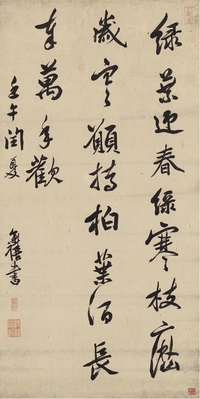 綠葉迎春綠寒枝歷
歲寒願持柏葉酒長
奉萬年歡
壬午閏夏
奕禧書